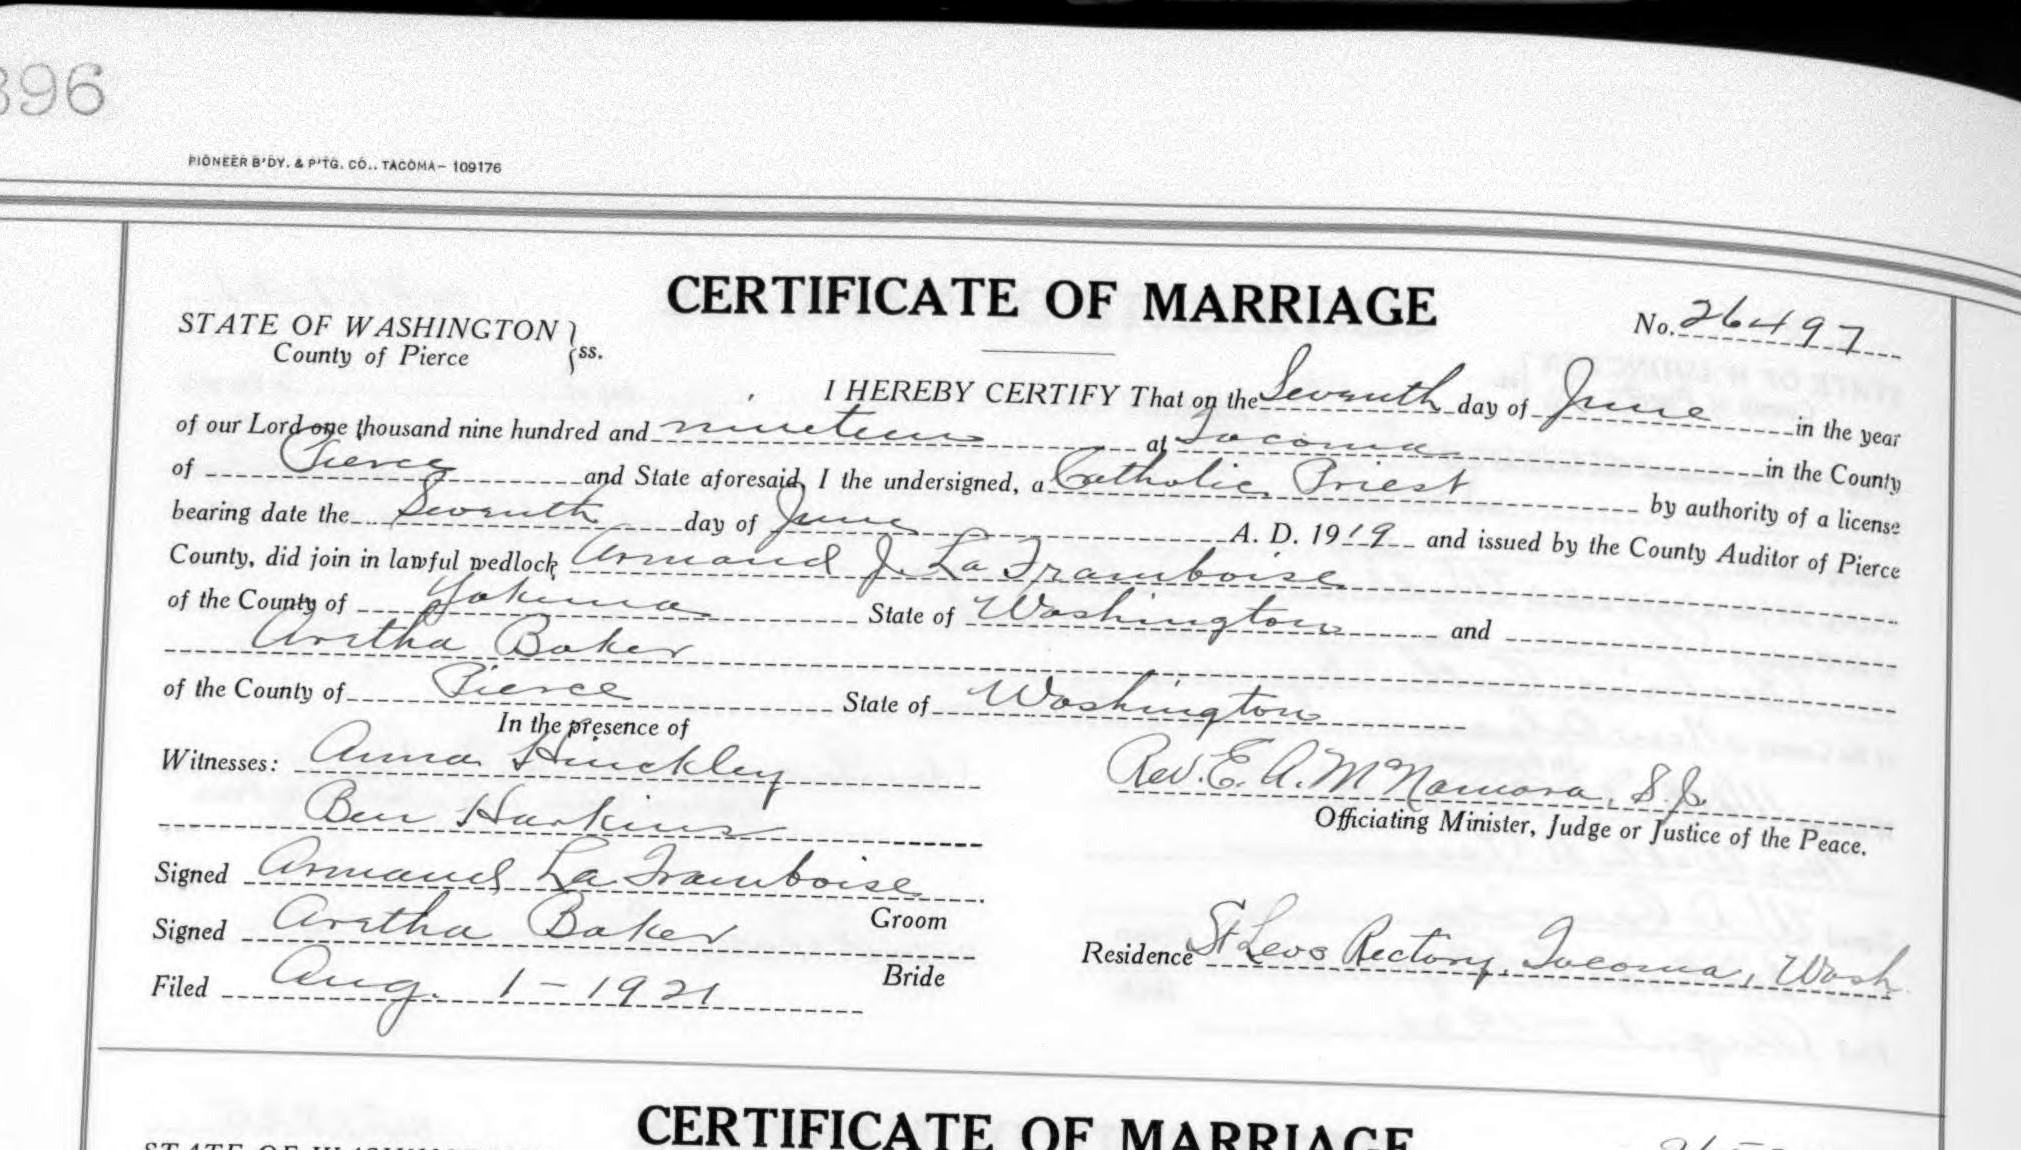 396
PIONEER B'DY. & P'TG. CO., TACOMA— 109176
CERTIFICATE OF MARRIAGE
No. 26497
STATE OF WASHINGTON } ss.
County of Pierce
I HEREBY CERTIFY That on the Seventh day of June in the year
of our Lord one thousand nine hundred and nineteen at Tacoma in the County
of Pierce and State aforesaid, I the undersigned, a Catholic Priest by authority of a license
bearing date the Seventh day of June A. D. 1919 and issued by the County Auditor of Pierce
County, did join in lawful wedlock Armand J. La Framboise
of the County of Yakima State of Washington and
Aretha Baker
of the County of Pierce State of Washington
In the presence of
Witnesses: Anna Hinckley
Ben Harkins
Rev. E. A. McNamara, S.J.
Officiating Minister, Judge or Justice of the Peace.
Signed Armand La Framboise
Groom
Signed Aretha Baker
Bride
Residence St Leos Rectory, Tacoma, Wash
Filed Aug. 1 - 1921
CERTIFICATE OF MARRIAGE
STATE OF WASHINGTON